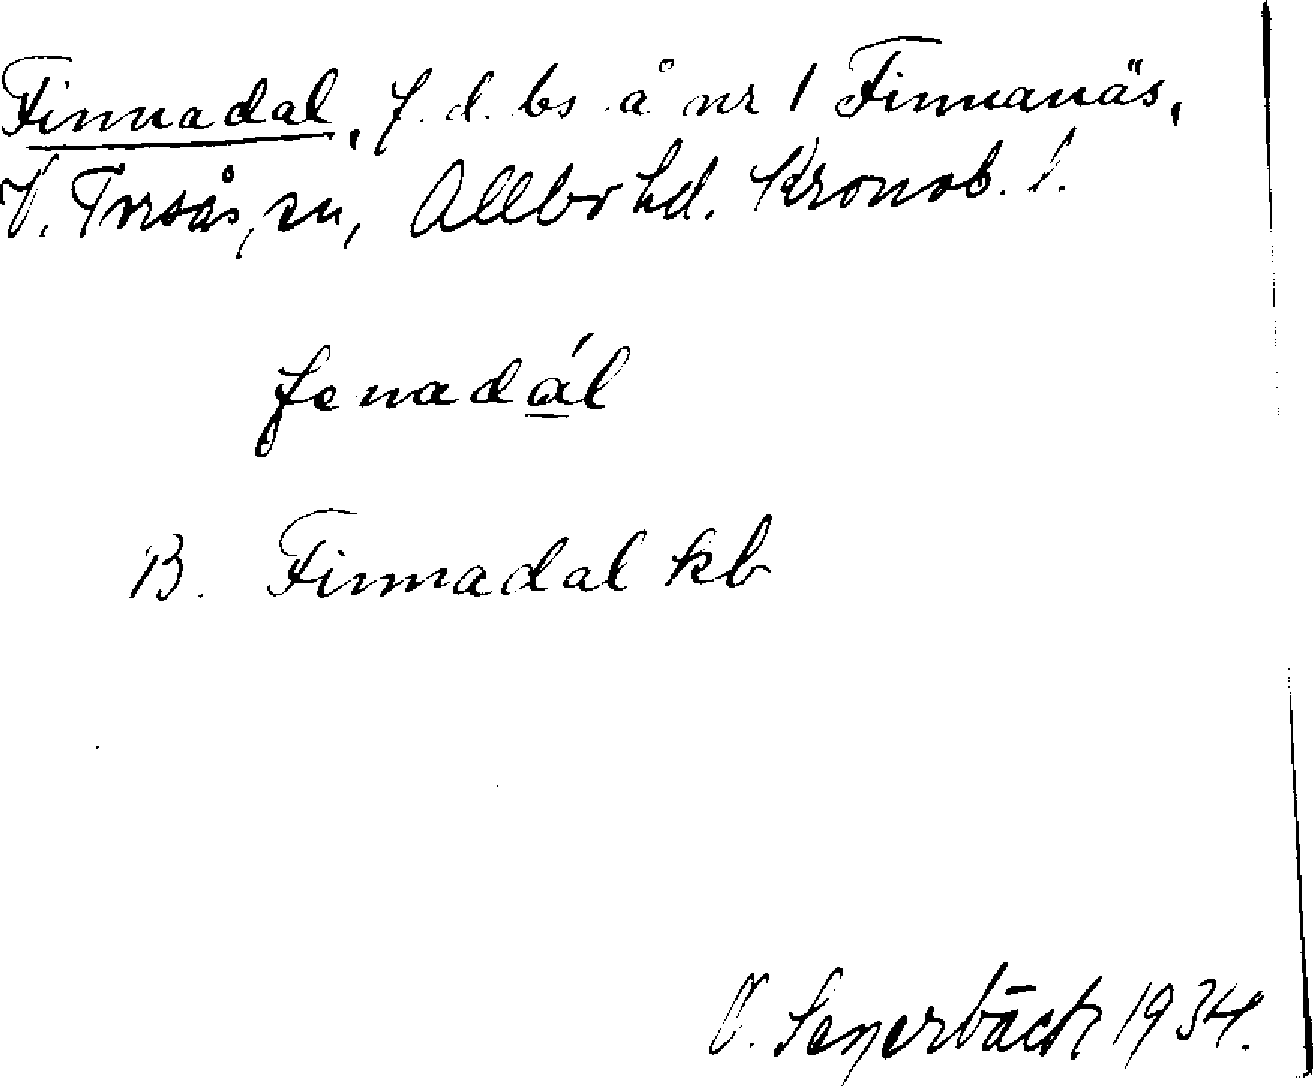 Finnadal, f. d. bs å nr 1 Finnanäs,
V. Torsås, sn, Allbo hd. Kronob. l.
fenadál
B. Finnadal kb
V. Segerbäck 1934.